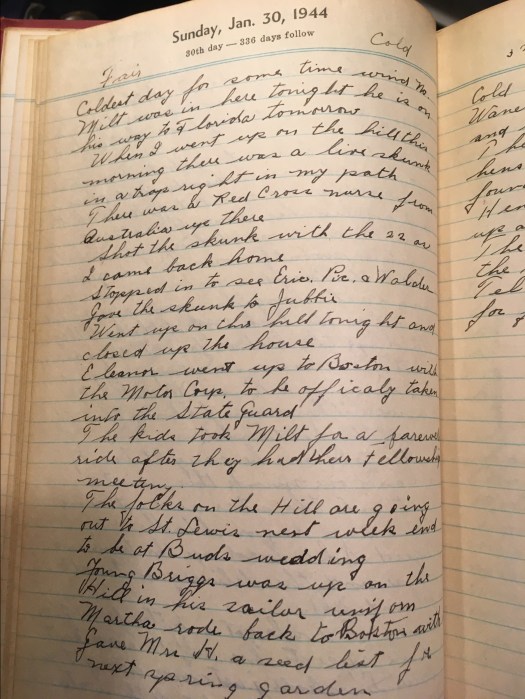 Sunday, Jan. 30, 1944
30th day — 336 days follow
Fair Cold
Coldest day for some time wind N.
Milt was in here tonight he is on
his way to Florida tomorrow
When I went up on the hill this
morning there was a live skunk
in a trap right in my path
There was a Red Cross nurse from
Australia up there
Shot the skunk with the 22 as
I came back home
Stopped in to see Eric. & Walder
Gave the skunk to Jubbie
Went up on the hill tonight and
closed up the house
Eleanor went up to Boston with
the Motor Corp. to be officaly taken
into the State Guard
The kids took Milt for a farewell
ride after they had their Fellowship
meeting.
The folks on the Hill are going
out to St. Lewis next week end
to be at Buds wedding
Young Briggs was up on the
Hill in his sailor uniform
Martha rode back to Boston with
Gave Mrs H. a seed list for
next spring garden
Cold
Wane
and
The
hens
four
Hen
up a
The
the
Tel
for g